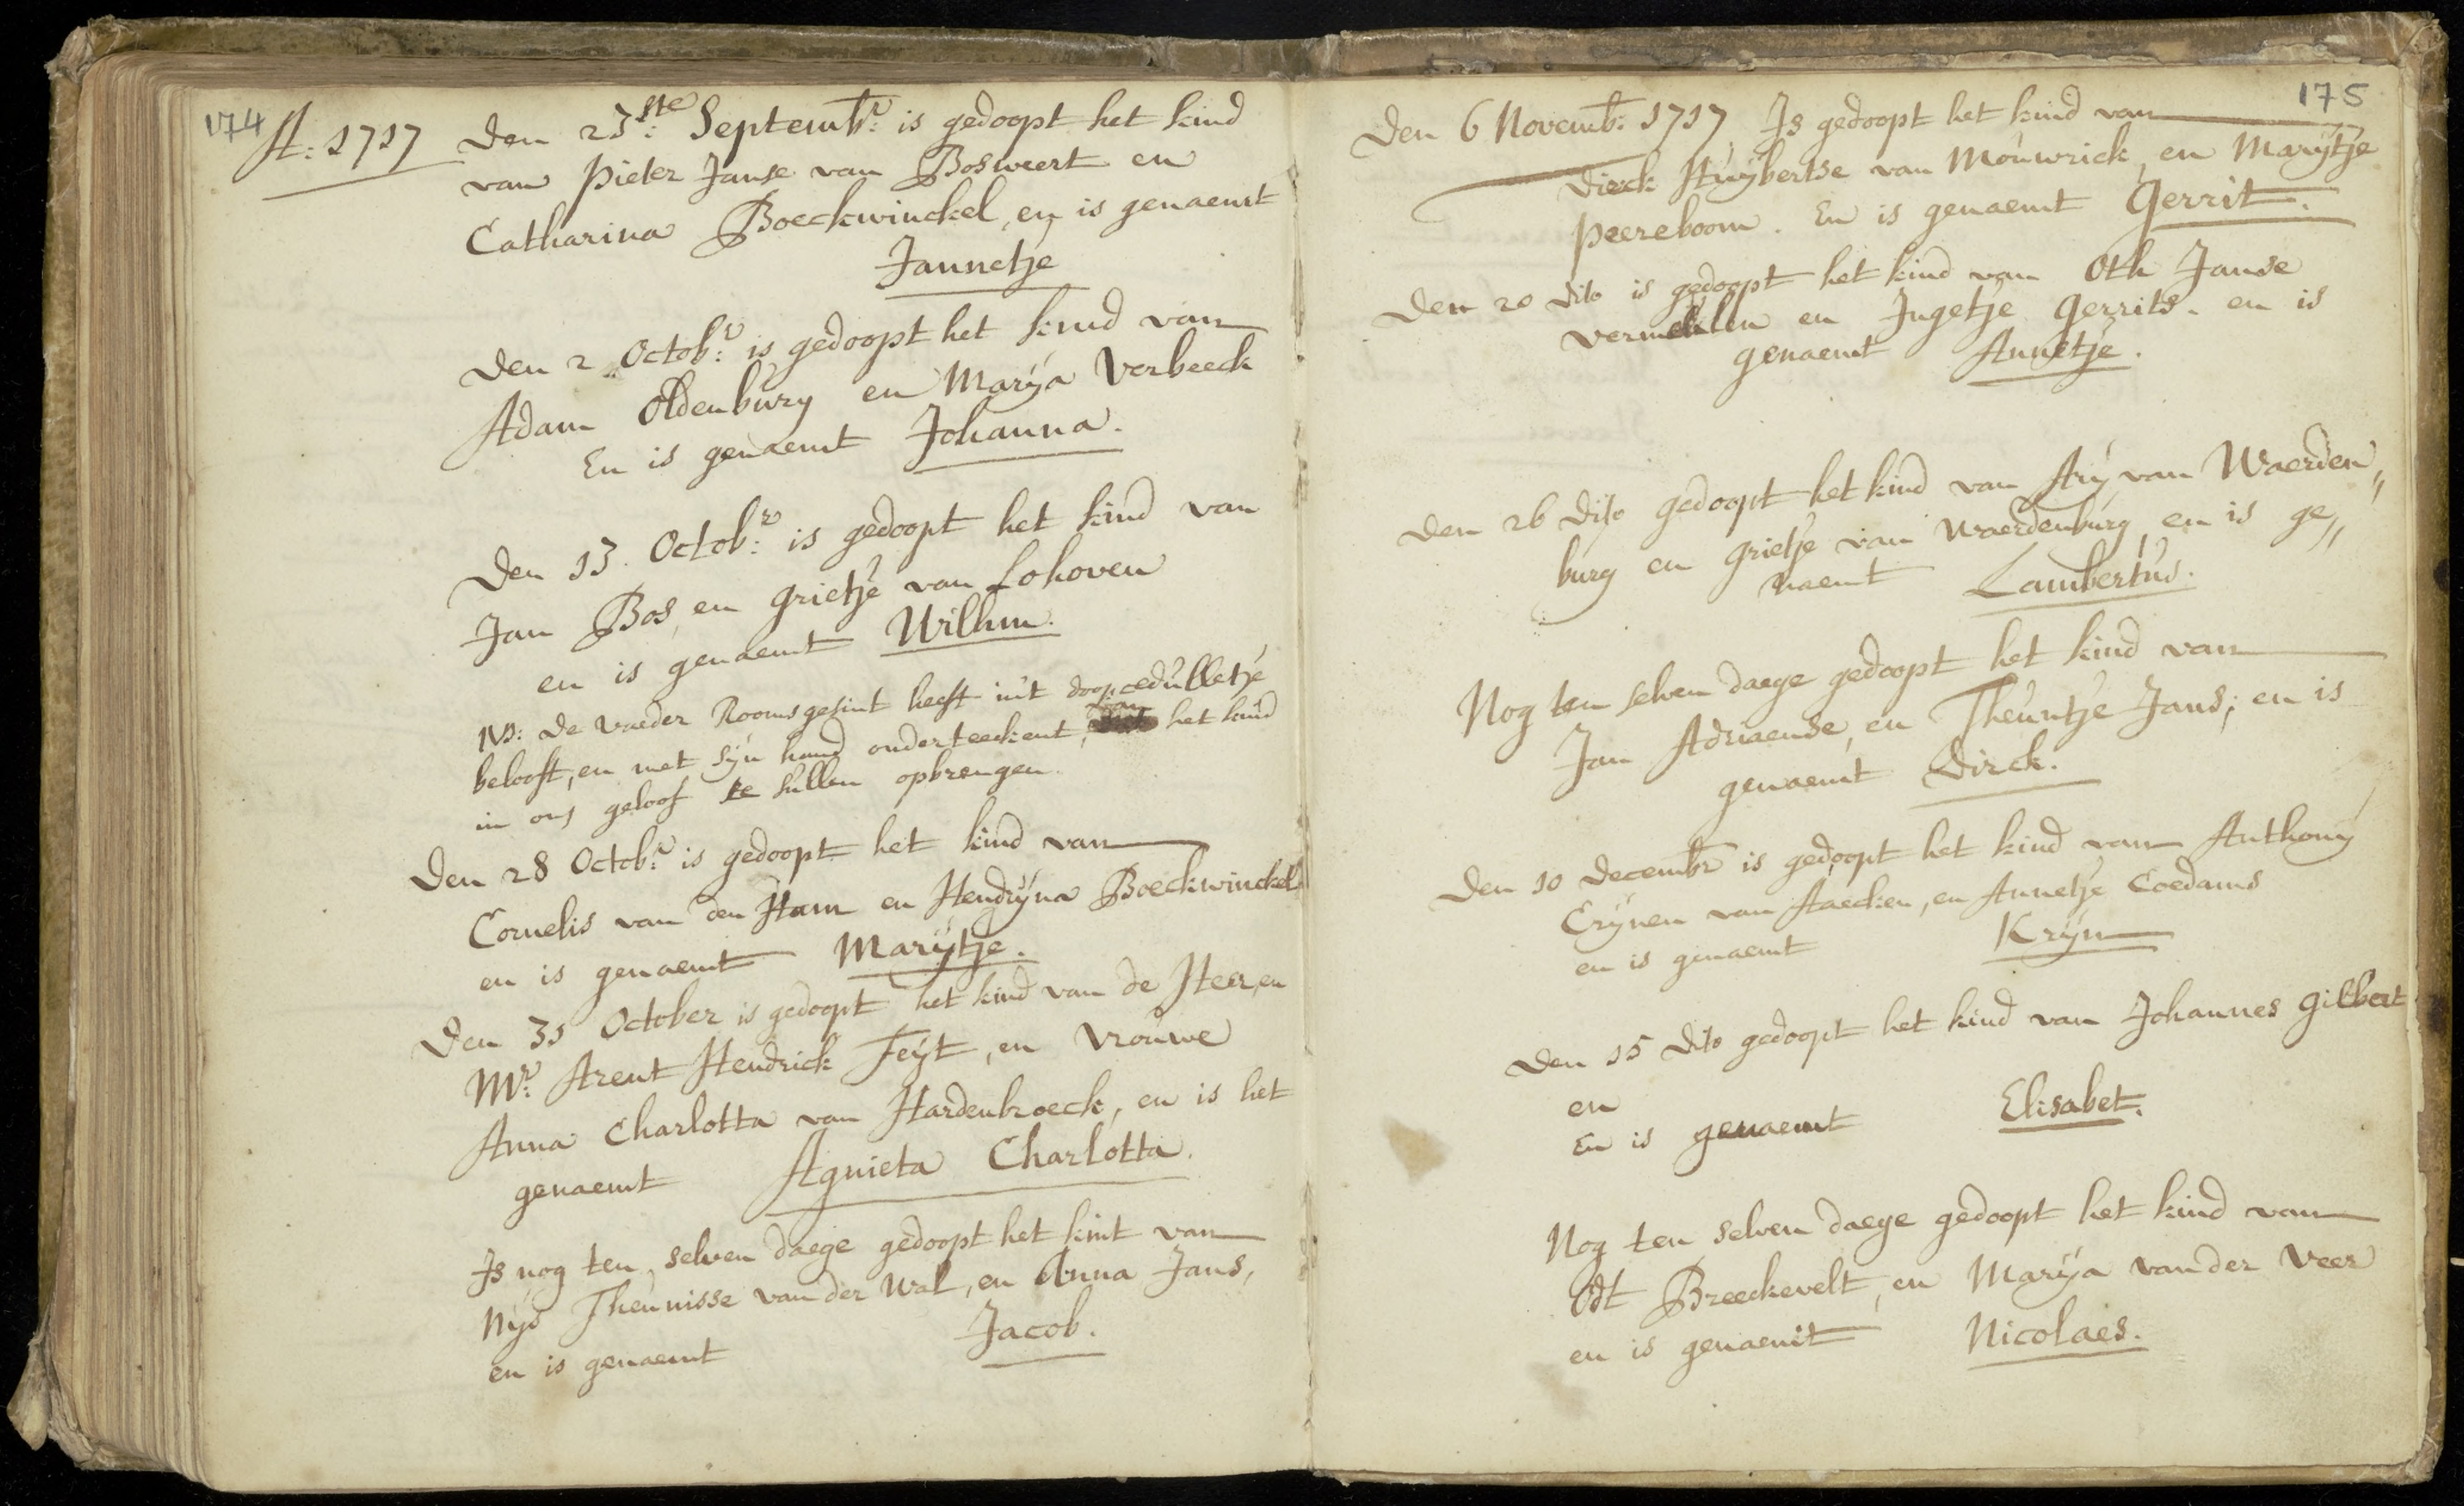 174
A: 1717 Den 23ste: Septembr: is gedoopt het kind
van Pieter Janse van Bosweert en
Catharina Boeckwinckel, en is genaemt
Jannetje
Den 2 Octobr: is gedoopt het kind van
Adam Oldenburg en Marÿa Verbeeck
En is genaemt Johanna.
Den 13. Octobr: is gedoopt het kind van
Jan Bos, en Grietje van Lohoven
en is genaemt Willem.
NB: De Vaeder Roomsgesint heeft in't doopcedulletje
belooft, en met sÿn hand onderteeckent, van het kind
in ons geloof te sullen opbrengen.
Den 28 Octobr: is gedoopt het kind van
Cornelis van den Ham en Hendrÿna Boeckwinckel
en is genaemt Marÿtje.
Den 31 October is gedoopt het kind van de Heer, en
Mr: Arent Hendrick Feÿt, en Vrouwe
Anna Charlotta van Hardenbroeck, en is het
genaemt Agnieta Charlotta.
Is nog ten selven daege gedoopt het kint van
Nÿs Theunisse van der Wal, en Anna Jans,
en is genaemt Jacob.
175
Den 6 Novemb: 1717 Is gedoopt het kind van
Dirck Huÿbertse van Mouwrick, en Marÿtje
Peereboom. En is genaemt Gerrit.
Den 20 dito is gedoopt het kind van Oth Janse
Vermeulen en Ingetje Gerrits. en is
genaemt Annetje.
Den 26 dito gedoopt het kind van Arÿ van Waerden„
burg en Grietje van Waerdenburg, en is ge„
naemt Lambertus.
Nog ten selven daege gedoopt het kind van
Jan Adriaense, en Theuntje Jans; en is
genaemt Dirck.
Den 10 Decembr is gedoopt het kind van Anthonÿ
Crÿnen van Aaecken, en Annetje Coedams
en is genaemt Krÿn
Den 15 dito gedoopt het kind van Johannes Gilbert
en
En is genaemt Elisabet.
Nog ten selven daege gedoopt het kind van
Odt Breeckevelt, en Marÿa van der Veer
en is genaemt Nicolaes.